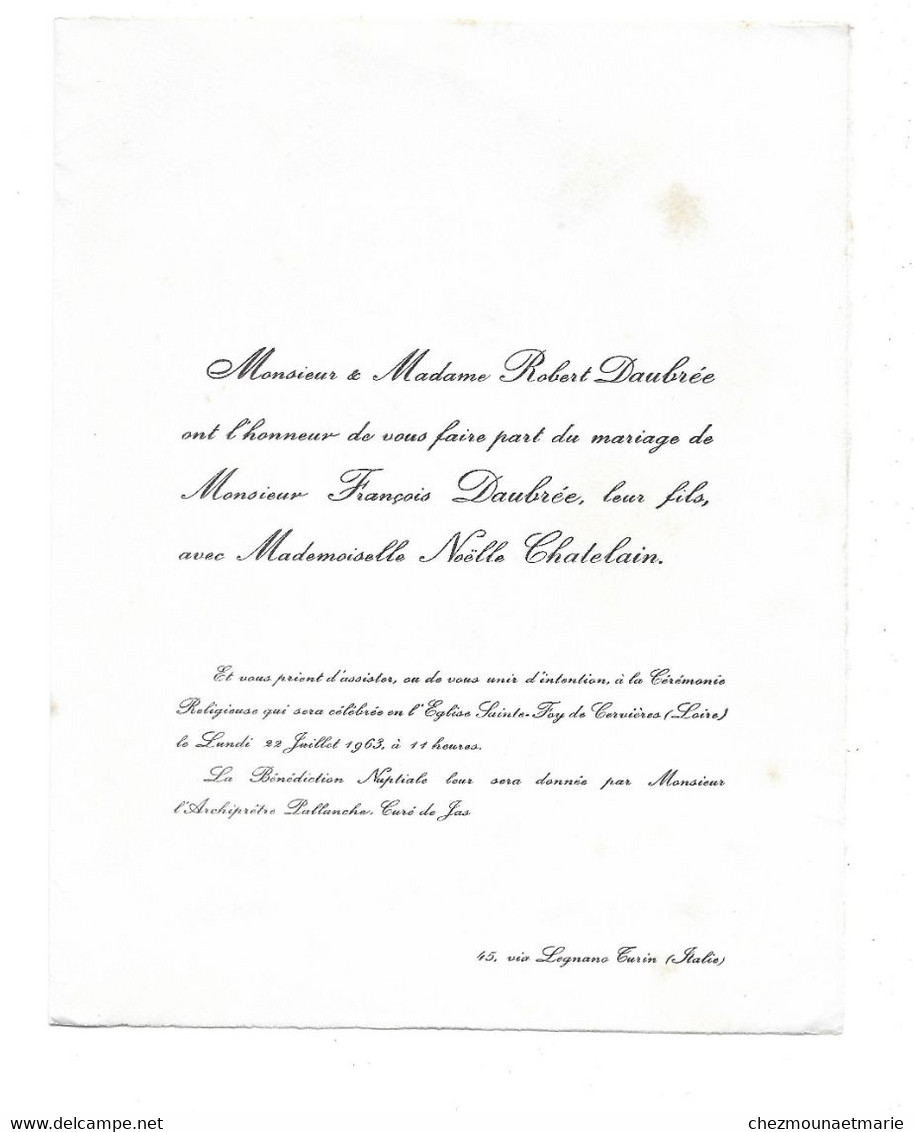 Monsieur & Madame Robert Daubrée
ont l'honneur de vous faire part du mariage de
Monsieur François Daubrée, leur fils,
avec Mademoiselle Noëlle Chatelain.
Et vous prient d'assister, ou de vous unir d'intention, à la Cérémonie
Religieuse qui sera célébrée en l'Eglise Sainte-Foy de Cervières (Loire)
le Lundi 22 Juillet 1963, à 11 heures.
La Bénédiction Nuptiale leur sera donnée par Monsieur
l'Archiprêtre Pallanche, Curé de Jas
45, via Legnano Turin (Italie)
chezmounaetmarie